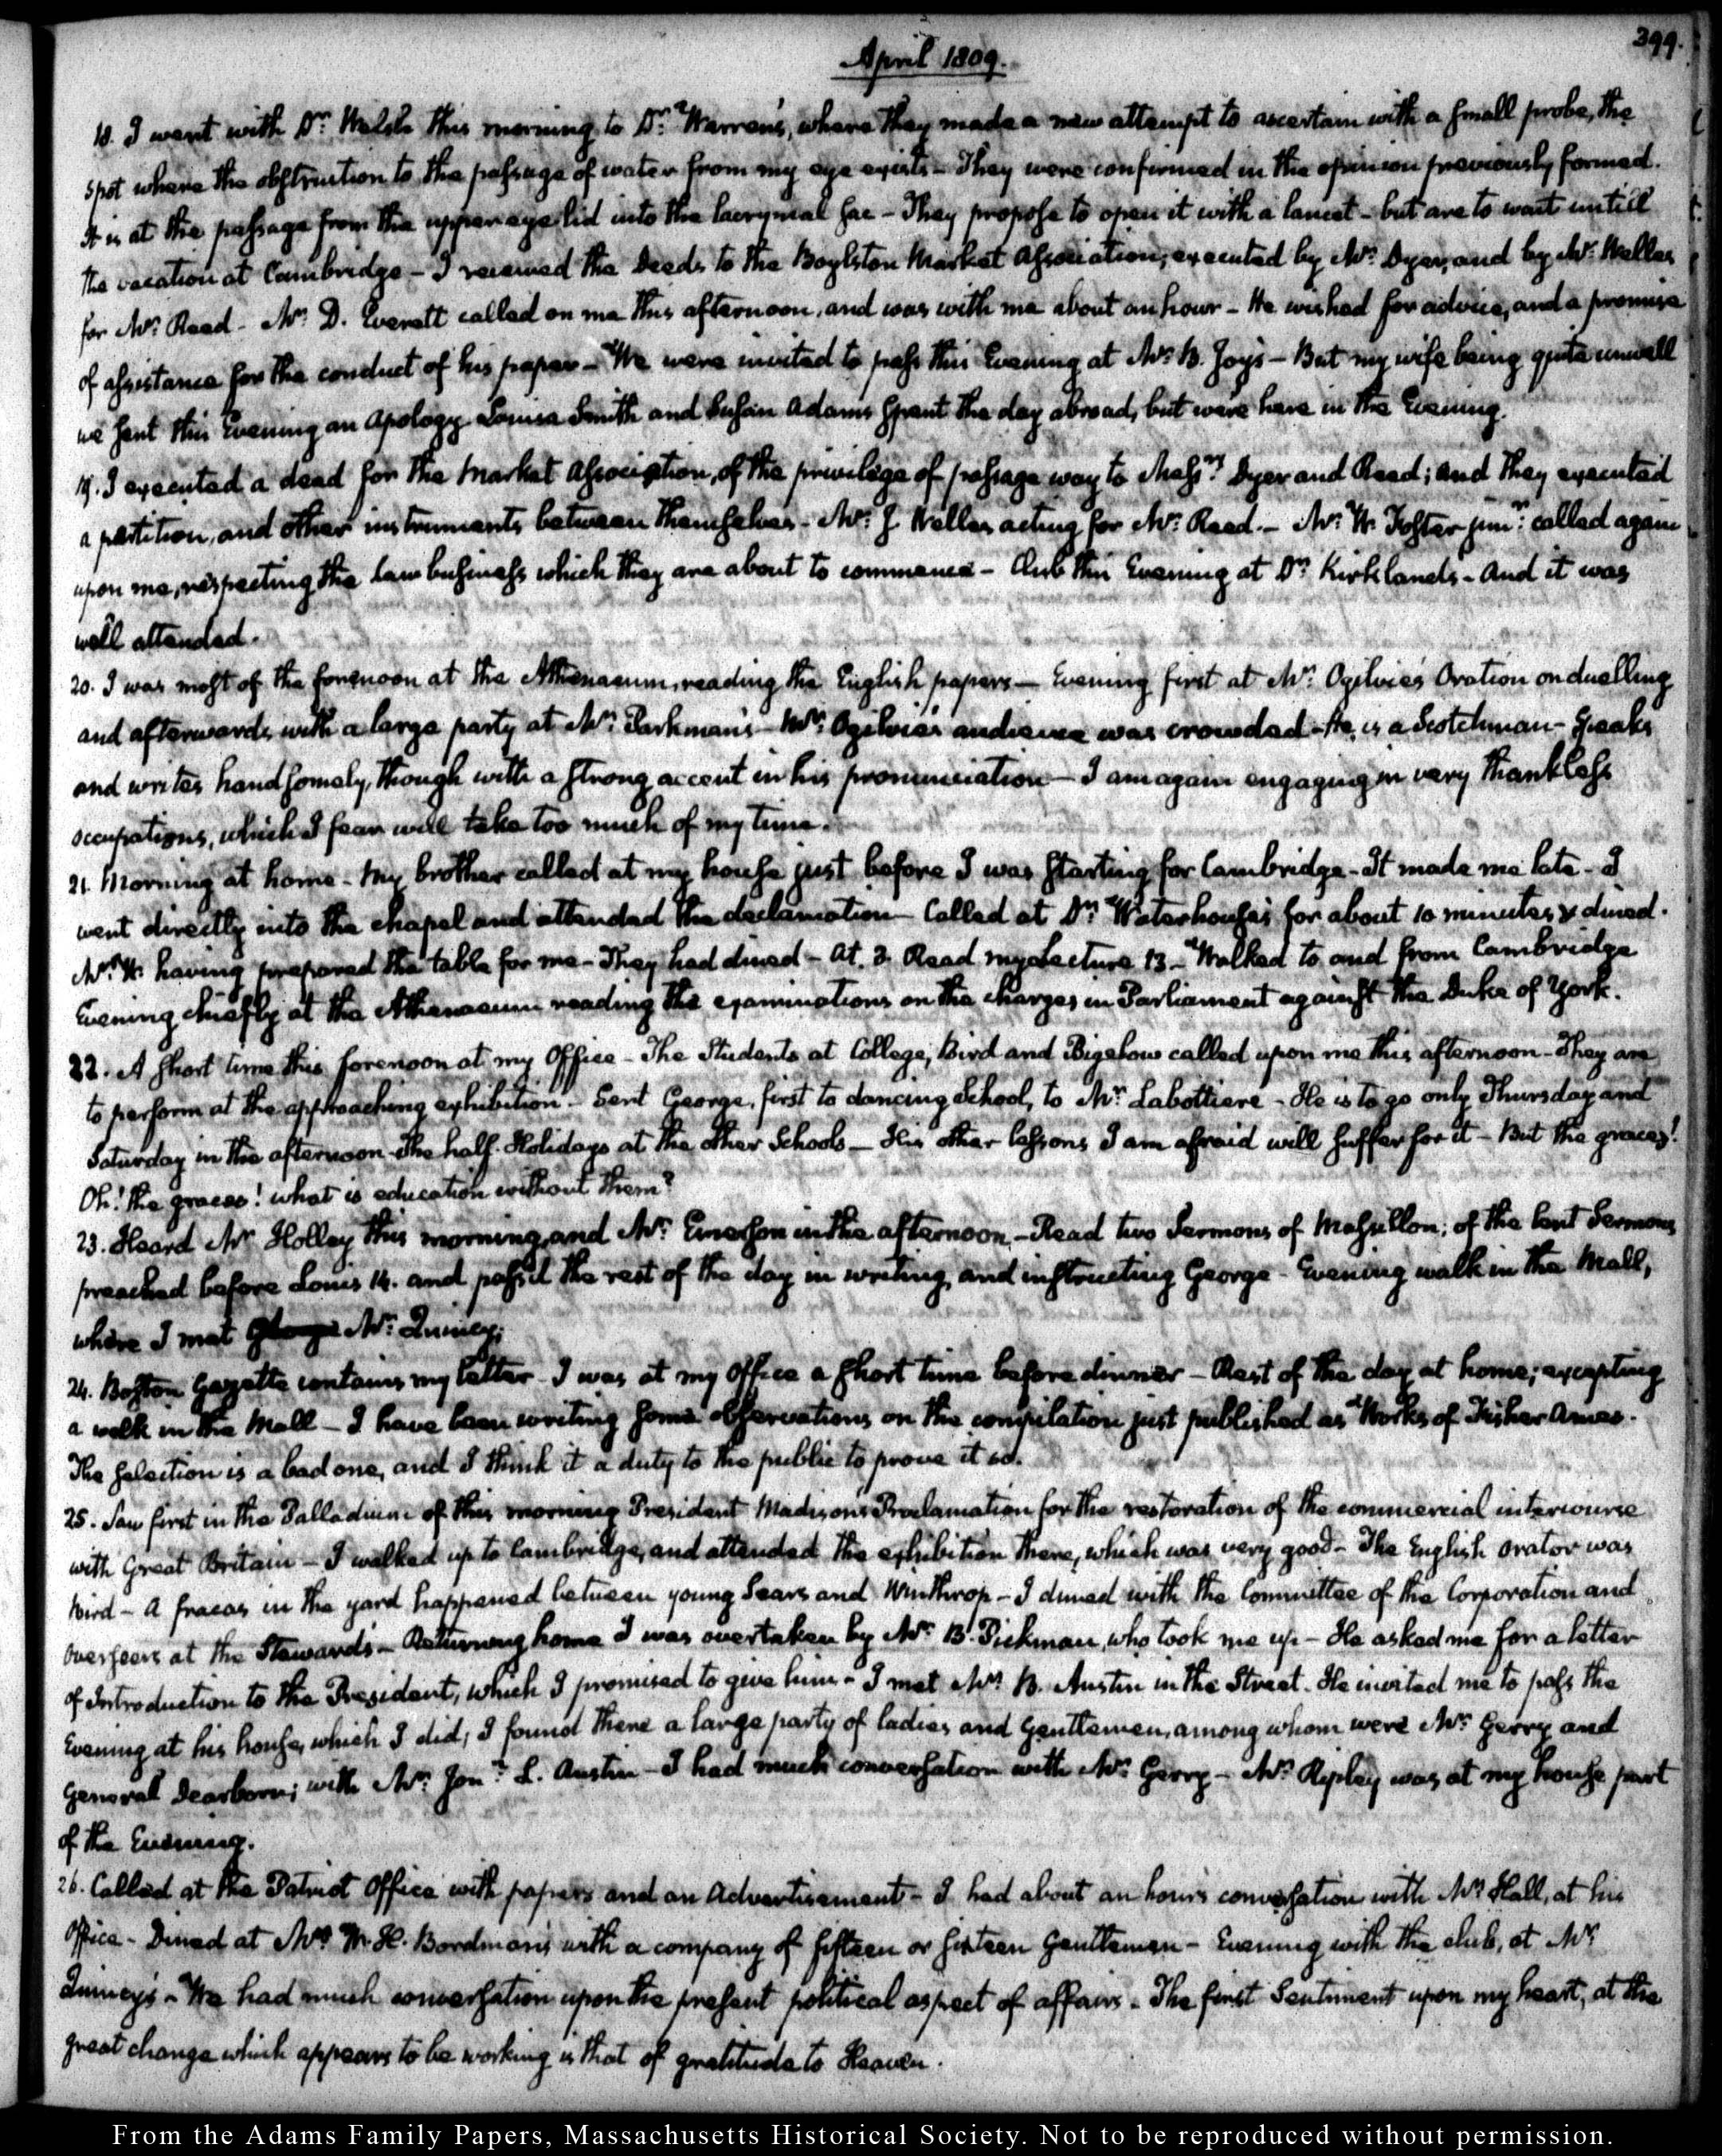 399.
April 1809.
18. I went with Dr. Welsh this morning to Dr. Warren's, where they made a new attempt to ascertain with a small probe, the
spot where the obstruction to the passage of water from my eye exists - They were confirmed in the opinion previously formed.
It is at the passage from the upper eye lid into the lacrymal sac - They propose to open it with a lancet - but are to wait untill
the vacation at Cambridge - I received the Deeds to the Boylston Market Association, executed by Mr. Dyer, and by Mr. Welles
for Mr. Read - Mr. D. Everett called on me this afternoon, and was with me about an hour - He wished for advice, and a promise
of assistance for the conduct of his paper - We were invited to pass this Evening at Mr. B. Joy's - But my wife being quite unwell
we sent this Evening an apology. Louisa Smith and Susan Adams spent the day abroad, but were here in the Evening.
19. I executed a deed for the Market Association, of the privilege of passage way to Messrs. Dyer and Read; and they executed
a partition, and other instruments between themselves - Mr. J. Welles acting for Mr. Read. - Mr. W. Foster junr. called again
upon me, respecting the law business which they are about to commence - Club this Evening at Dr. Kirkland's - And it was
well attended.
20. I was most of the forenoon at the Athenaeum, reading the English papers - Evening first at Mr. Ogilvie's Oration on duelling
and afterwards with a large party at Mr. Parkman's - Mr. Ogilvie's audience was crowded - He is a Scotchman - Speaks
and writes handsomely, though with a strong accent in his pronunciation - I am again engaging in very thankless
occupations, which I fear will take too much of my time.
21. Morning at home - My brother called at my house just before I was starting for Cambridge - It made me late - I
went directly into the chapel and attended the declamation - Called at Dr. Waterhouse's for about 10 minutes & dined.
Mrs. W. having prepared the table for me - They had dined - At 3. Read my Lecture 13 - Walked to and from Cambridge
Evening chiefly at the Athenaeum reading the examinations on the charges in Parliament against the Duke of York.
22. A short time this forenoon at my Office - The Students at College, Bird and Bigelow called upon me this afternoon - They are
to perform at the approaching exhibition - Sent George, first to dancing School, to Mr. Labottiere - He is to go only Thursday and
Saturday in the afternoon - the half-Holidays at the other Schools - His other lessons I am afraid will suffer for it - But the graces!
Oh! the graces! what is education without them?
23. Heard Mr. Holley this morning, and Mr. Emerson in the afternoon - Read two Sermons of Massillon; of the lent Sermons
preached before Louis 14. and pass'd the rest of the day in writing, and instructing George - Evening walk in the Mall,
where I met Mr. Quincy;
24. Boston Gazette contains my letter - I was at my Office a short time before dinner - Rest of the day at home; excepting
a walk in the Mall - I have been writing some observations on the compilation just published as Works of Fisher Ames.
The selection is a bad one, and I think it a duty to the public to prove it so.
25. Saw first in the Palladium of this morning President Madison's Proclamation for the restoration of the commercial intercourse
with Great Britain - I walked up to Cambridge, and attended the exhibition there, which was very good - The English orator was
Bird - A fracas in the yard happened between young Sears and Winthrop - I dined with the Committee of the Corporation and
Overseers at the Steward's - Returning home I was overtaken by Mr. B. Pickman, who took me up - He asked me for a letter
of Introduction to the President, which I promised to give him - I met Mr. B. Austin in the Street. He invited me to pass the
Evening at his house, which I did; I found there a large party of ladies and Gentlemen, among whom were Mr. Gerry and
General Dearborn; with Mr. Jonn. L. Austin - I had much conversation with Mr. Gerry - Mr. Ripley was at my house part
of the Evening.
26. Called at the Patriot Office with papers and an Advertisement - I had about an hour's conversation with Mr. Hall, at his
Office - Dined at Mr. W. H. Bordman's with a company of fifteen or sixteen Gentlemen - Evening with the club, at Mr.
Quincy's - We had much conversation upon the present political aspect of affairs - The first Sentiment upon my heart, at the
great change which appears to be working is that of gratitude to Heaven.
From the Adams Family Papers, Massachusetts Historical Society. Not to be reproduced without permission.